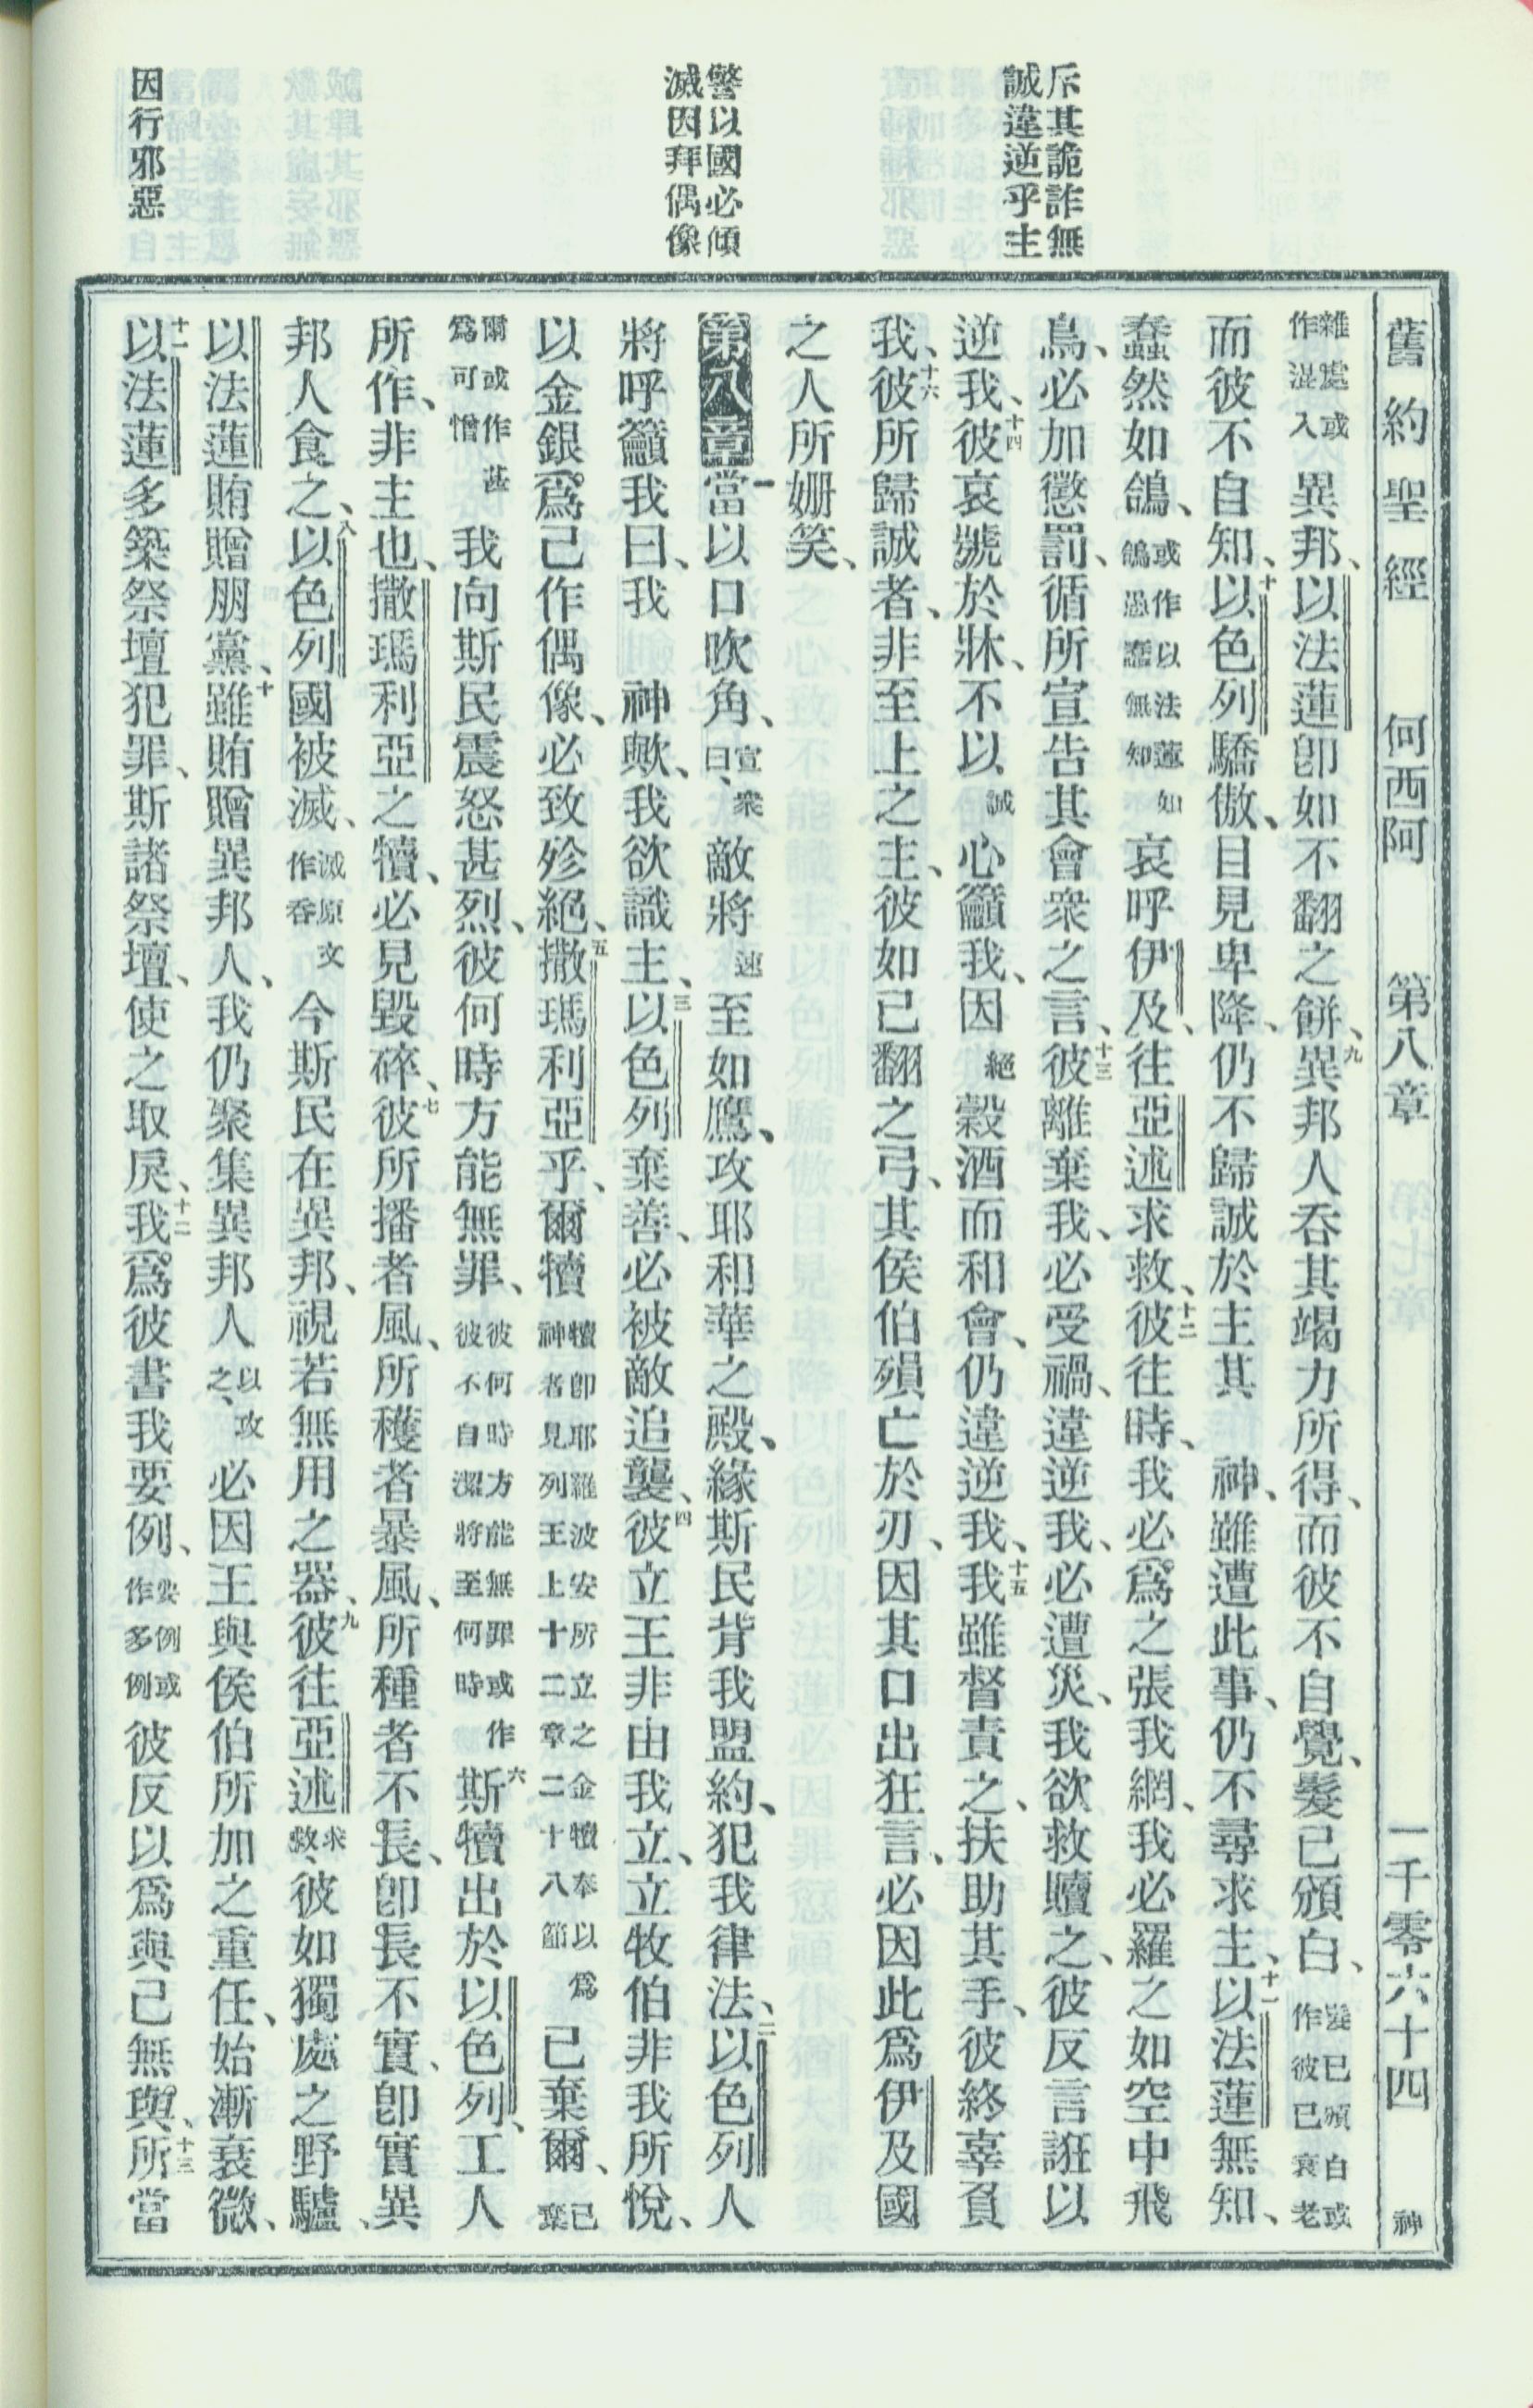 舊約聖經　何西阿　第八章　一千零六十四　神
斥其詭詐無
誠違逆乎主
警以國必傾
滅因拜偶像
因行邪惡
雜處或作混入異邦、以法蓮卽如不翻之餅、九異邦人吞其竭力所得、而彼不自覺、髮已頒白、髮已頒白或作彼已衰老
而彼不自知、十以色列驕傲、目見卑降、仍不歸誠於主其　神、雖遭此事、仍不尋求主、十一以法蓮無知、
蠢然如鴿、或作以法蓮如鴿愚蠢無知哀呼伊及、往亞述求救、十二彼往時、我必爲之張我網、我必羅之如空中飛
鳥、必加懲罰、循所宣告其會衆之言、十三彼離棄我、必受禍、違逆我、必遭災、我欲救贖之、彼反言誑以
逆我、十四彼哀號於牀、不以誠心籲我、因絕穀酒而和會、仍違逆我、十五我雖督責之、扶助其手、彼終辜負
我、十六彼所歸誠者、非至上之主、彼如已翻之弓、其侯伯殞亡於刃、因其口出狂言、必因此爲伊及國
之人所姍笑、
第八章一當以口吹角、宣衆曰、敵將速至如鷹、攻耶和華之殿、緣斯民背我盟約、犯我律法、二以色列人
將呼籲我曰、我　神歟、我欲識主、三以色列棄善、必被敵追襲、四彼立王非由我立、立牧伯非我所悅、
以金銀爲己作偶像、必致殄絕、五撒瑪利亞乎、爾犢犢卽耶羅波安所立之金犢奉以爲神者見列王上十二章二十八節已棄爾、已棄
爾或作甚爲可憎我向斯民震怒甚烈、彼何時方能無罪、彼何時方能無罪或作彼不自潔將至何時六斯犢出於以色列、工人
所作、非主也、撒瑪利亞之犢、必見毀碎、七彼所播者風、所穫者暴風、所種者不長、卽長不實、卽實異
邦人食之、八以色列國被滅、滅原文作吞今斯民在異邦、視若無用之器、九彼往亞述求救、彼如獨處之野驢、
以法蓮賄贈朋黨、十雖賄贈異邦人、我仍聚集異邦人以攻之、必因王與侯伯所加之重任、始漸衰微、
十一以法蓮多築祭壇犯罪、斯諸祭壇、使之取戾、十二我爲彼書我要例、要例或作多例彼反以爲與己無與、十三所當